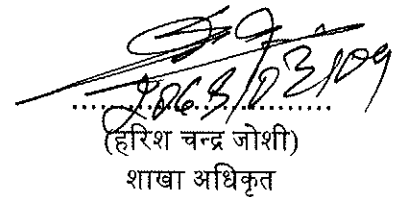 (हरिश चन्द्र जोशी)
शाखा अधिकृत